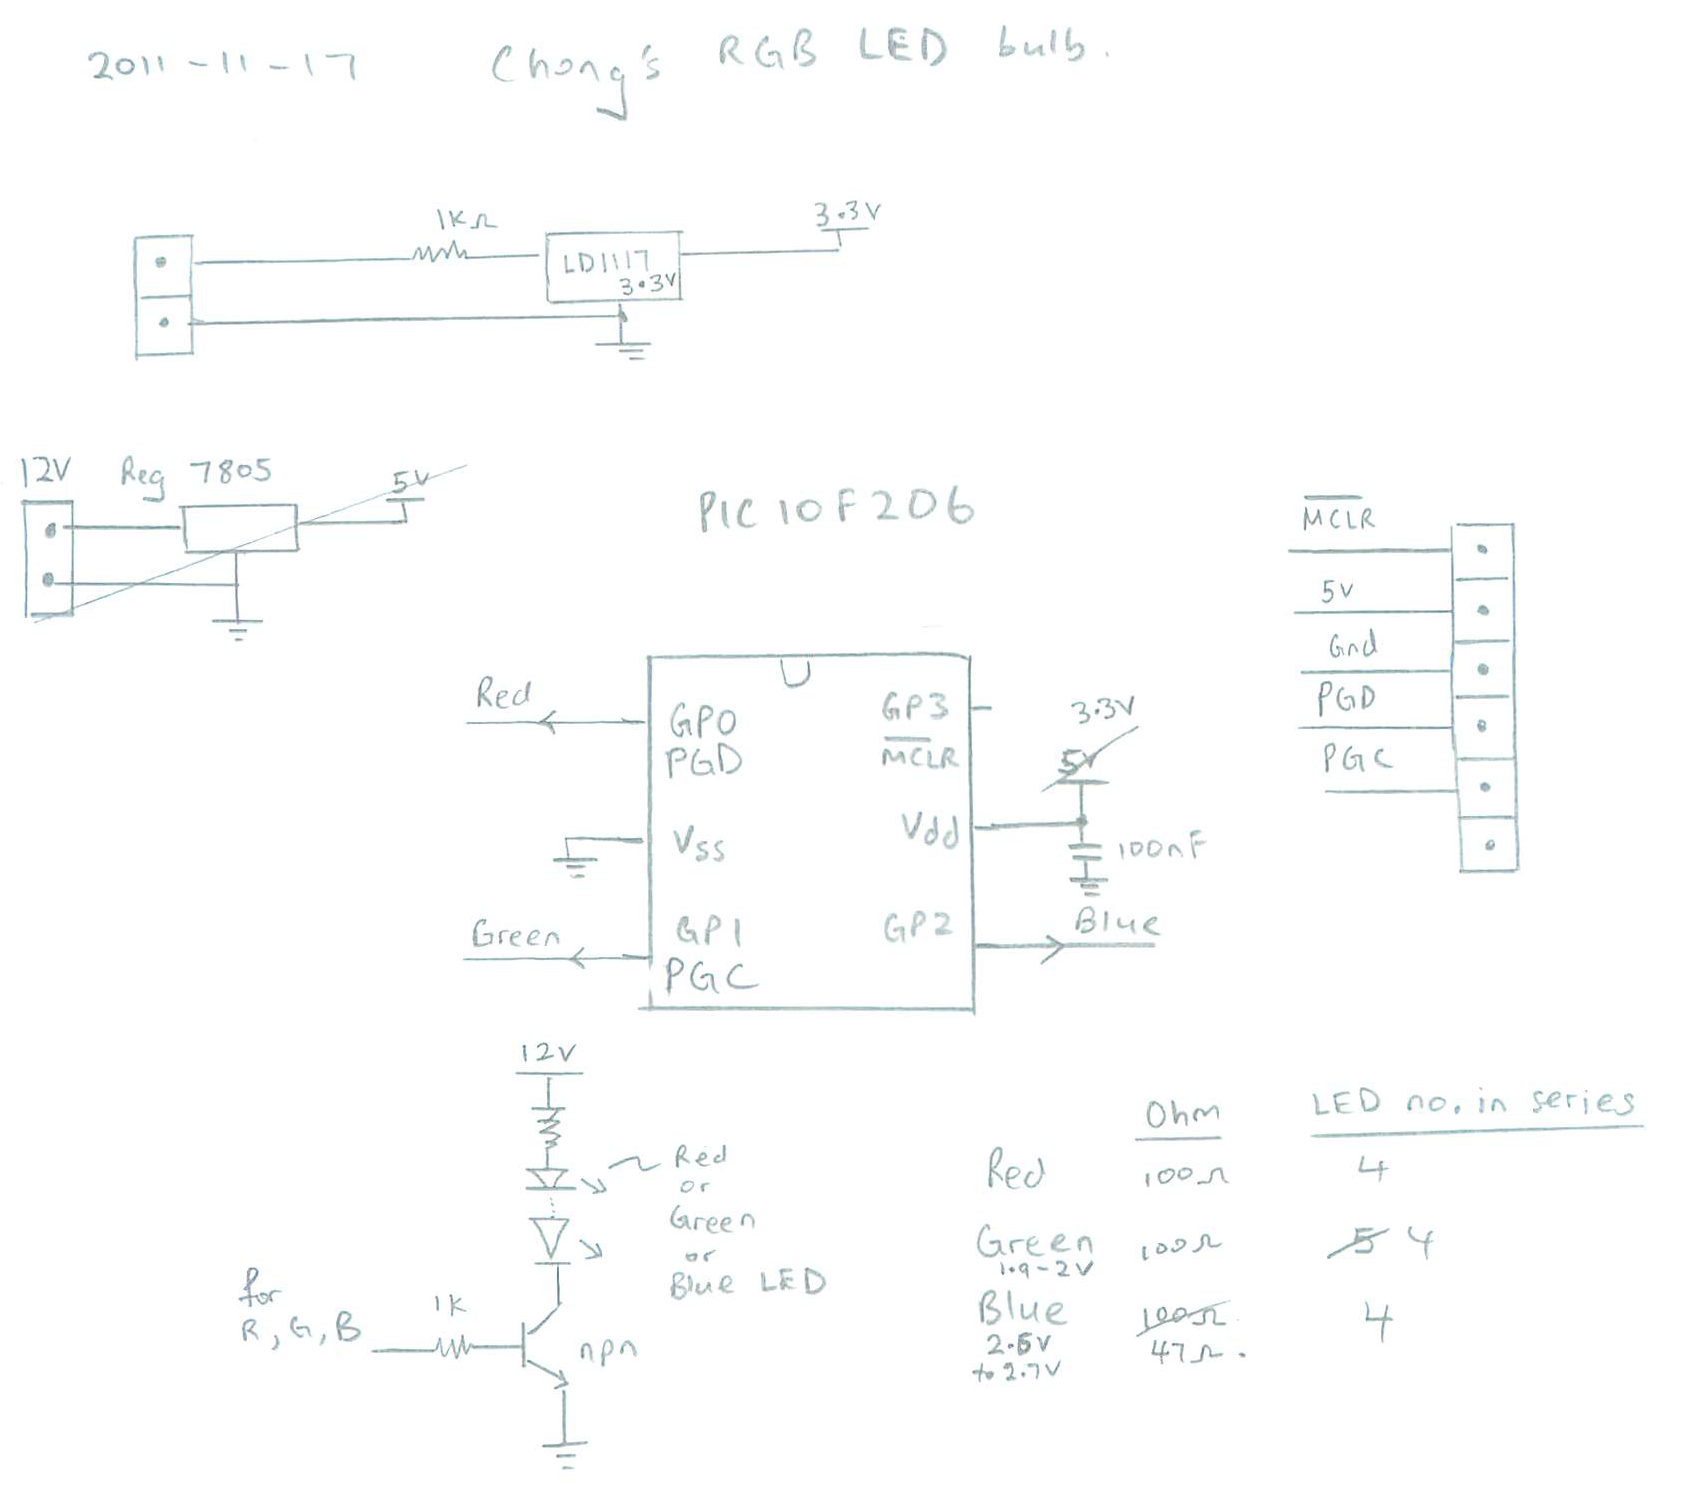 2011-11-17 Chong's RGB LED bulb.
1KΩ
3.3V
LD1117
3.3V
12V Reg 7805
5V
PIC10F206
MCLR
5V
Gnd
PGD
PGC
Red
GP0
PGD
GP3
MCLR
3.3V
5V
Vss
Vdd
100nF
Green
GP1
PGC
GP2
Blue
12V
Red
or
Green
or
Blue LED
for
R, G, B
1K
npn
Ohm LED no. in series
Red 100Ω 4
Green 100Ω 5 4
1.9-2V
Blue 100Ω 4
2.5V 47Ω.
to 2.7V